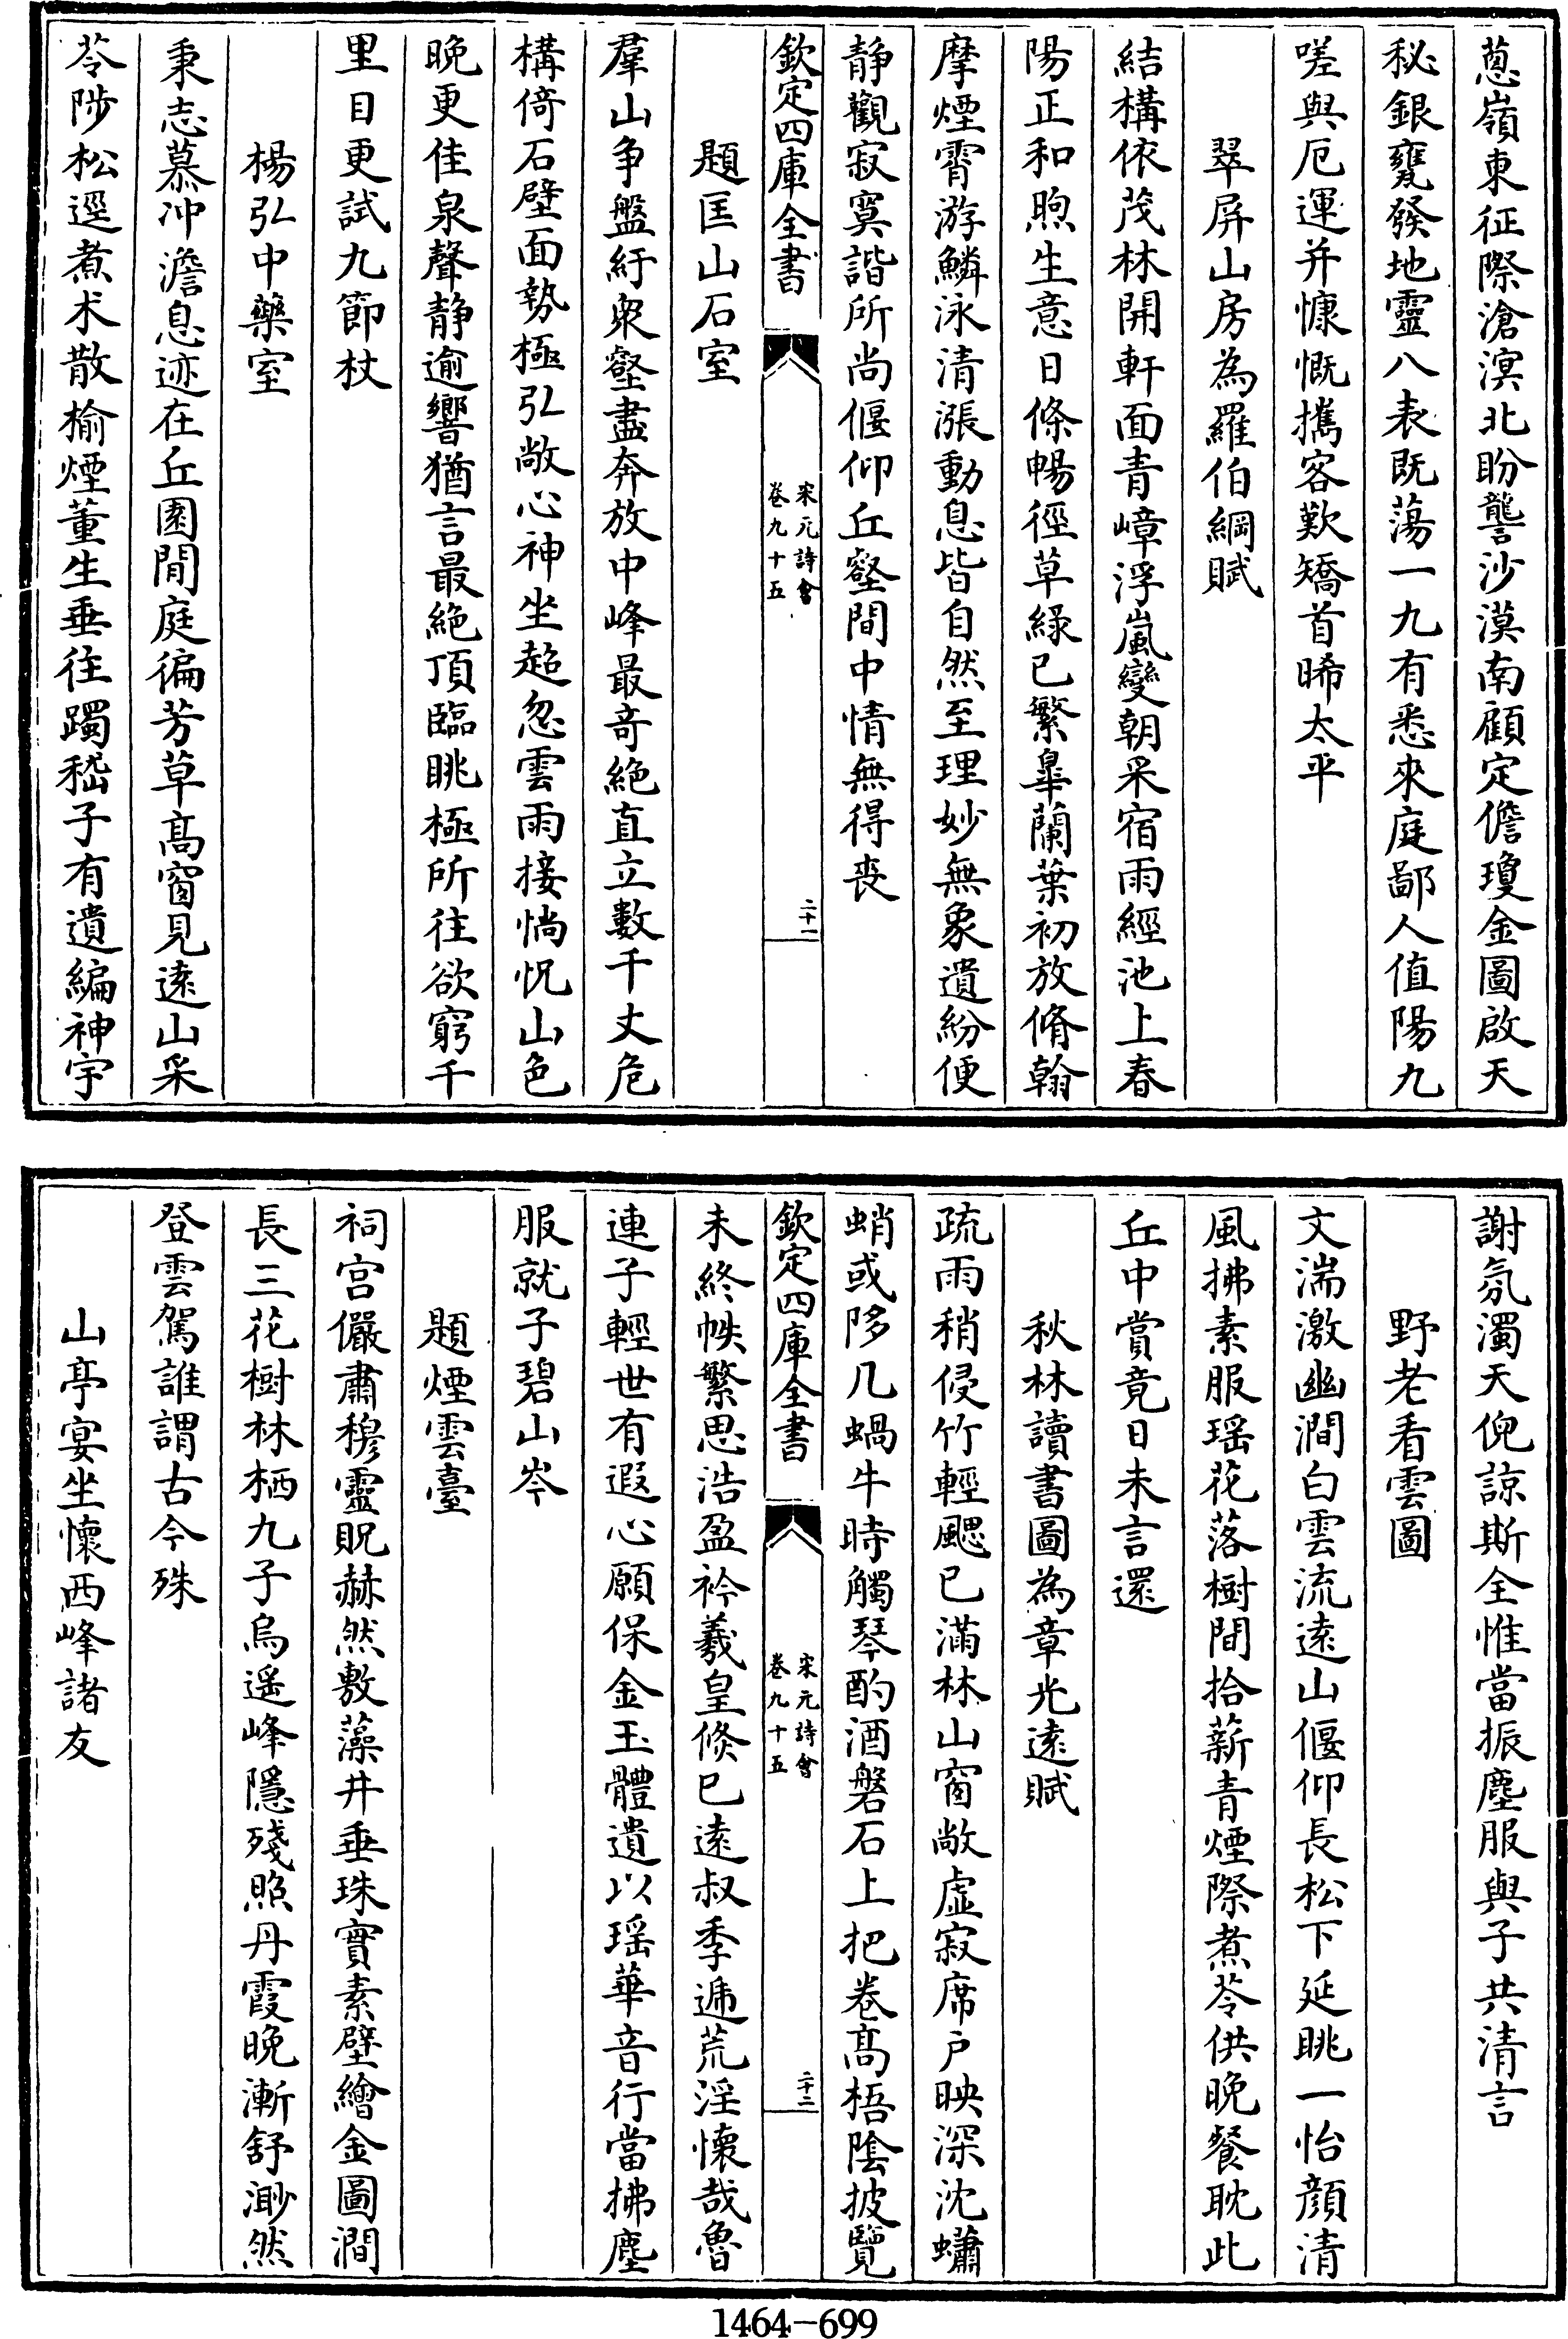 蔥嶺東征際滄溟北盼讋沙漠南顧定儋瓊金圖啟天
秘銀甕發地靈八表既蕩一九有悉來庭鄙人值陽九
嗟與厄運并慷慨攜客歎矯首晞太平
翠屏山房為羅伯綱賦
結構依茂林開軒面青嶂浮嵐變朝采宿雨經池上春
陽正和煦生意日條暢徑草綠已繁臯蘭葉初放脩翰
摩煙霄游鱗泳清漲動息皆自然至理妙無象遺紛便
靜觀寂寞諧所尚偃仰丘壑間中情無得喪
欽定四庫全書
宋元詩會
卷九十五
二十一
題匡山石室
羣山争盤紆衆壑盡奔放中峰最奇絶直立數千丈危
構倚石壁面勢極弘敞心神坐超忽雲雨接惝怳山色
晚更佳泉聲静逾響猶言最絶頂臨眺極所往欲窮千
里目更試九節杖
楊弘中藥室
秉志慕冲澹息迹在丘園閒庭徧芳草髙窗見逺山采
苓陟松逕煮术散榆煙董生垂往躅嵇子有遺編神宇
謝氛濁天倪諒斯全惟當振塵服與子共清言
野老看雲圖
文湍激幽澗白雲流逺山偃仰長松下延眺一怡顔清
風拂素服瑶花落樹間拾薪青煙際煮苓供晚餐耽此
丘中賞竟日未言還
秋林讀書圖為章光逺賦
疏雨稍侵竹輕颸已滿林山窗敞虚寂席户映深沈蠨
蛸或陊几蝸牛時觸琴酌酒磐石上把卷髙梧陰披覽
欽定四庫全書
宋元詩會
卷九十五
二十二
未終帙繁思浩盈衿羲皇倏已逺叔季遞荒淫懷哉魯
連子輕世有遐心願保金玉體遺以瑶華音行當拂塵
服就子碧山岑
題煙雲臺
祠宫儼肅穆靈貺赫然敷藻井垂珠實素壁繪金圖澗
長三花樹林栖九子烏遥峰隱殘照丹霞晚漸舒渺然
登雲駕誰謂古今殊
山亭宴坐懷西峰諸友
1464-699